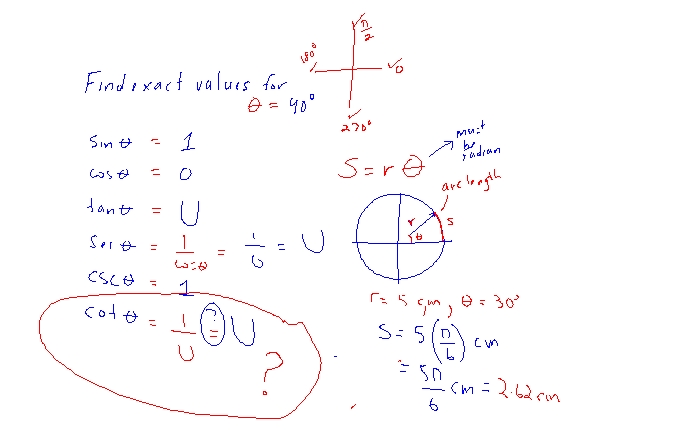 Find exact values for
θ = 90°
sin θ = 1
cos θ = 0
tan θ = U
sec θ = 1/cos θ = 1/0 = U
csc θ = 1
cot θ = 1/U ?= U
?
π/2
180°
0
270°
S = r θ
must
be
radian
arc length
r
s
θ
r = 5 cm, θ = 30°
S = 5 (π/6) cm
= 5π/6 cm = 2.62 cm